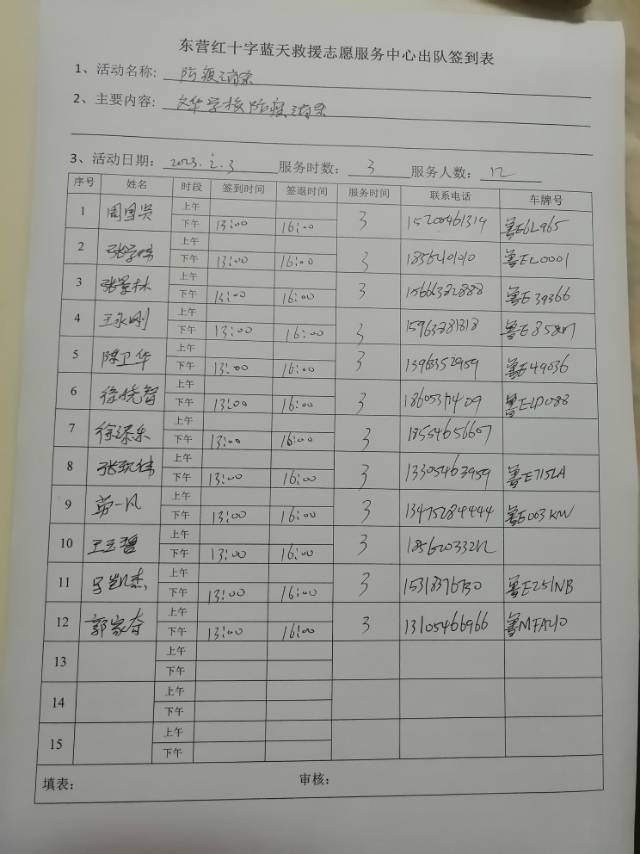 东营红十字蓝天救援志愿服务中心出队签到表
1、活动名称: 防疫消杀
2、主要内容: 文华学校防疫消杀
3、活动日期: 2023.2.3 服务时数: 3 服务人数: 12
序号 姓名 时段 签到时间 签退时间 服务时间 联系电话 车牌号
1 上午
下午 13:00 16:00 3 15200461319 鲁E6L965
2 上午
下午 13:00 16:00 3 鲁EL0001
3 张景林 上午
下午 13:00 16:00 3 15666372888 鲁E39366
4 王永刚 上午
下午 13:00 16:00 3 15963781818
5 陈卫华 上午
下午 13:00 16:00 3 13963352959 鲁E49036
6 徐晓智 上午
下午 13:00 16:00 3
7 徐添乐 上午
下午 13:00 16:00 3 18554656607
8 上午
下午 13:00 16:00 3 13305463959 鲁E715LA
9 上午
下午 13:00 16:00 3 13475284444 鲁E003KW
10 王玉碧 上午
下午 13:00 16:00 3
11 上午
下午 13:00 16:00 3 15318376730 鲁E251NB
12 郭家存 上午
下午 13:00 16:00 3 13105466966 鲁MFA210
13 上午
下午
14 上午
下午
15 上午
下午
填表: 审核: